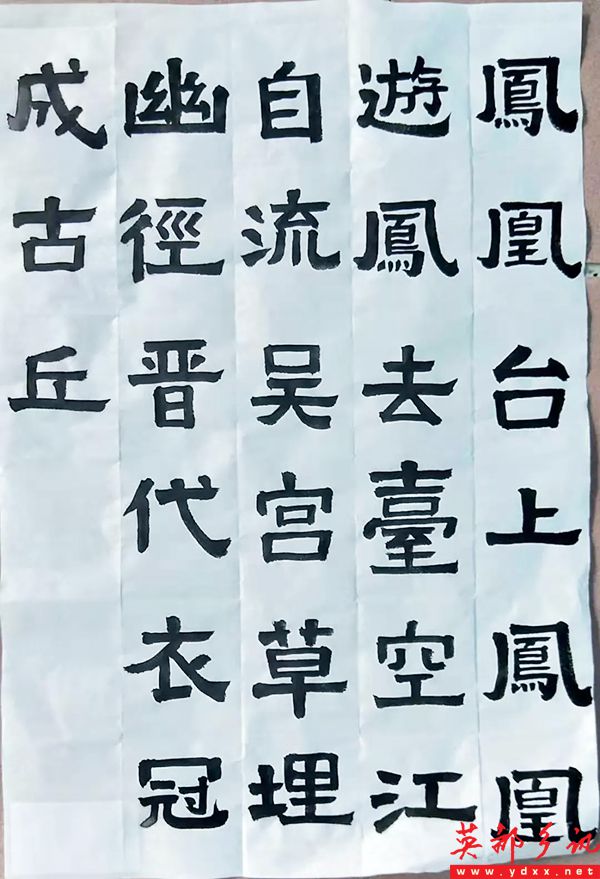 鳳凰台上鳳凰
遊鳳去臺空江
自流吴宫草埋
幽徑晋代衣冠
成古丘
英都乡讯
www.ydxx.net